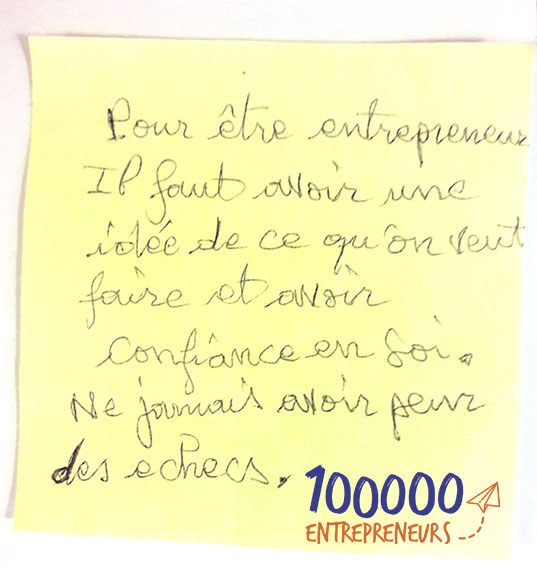 Pour être entrepreneur
Il faut avoir une
idée de ce qu'on veut
faire et avoir
confiance en soi.
Ne jamais avoir peur
des echecs.
100000
ENTREPRENEURS